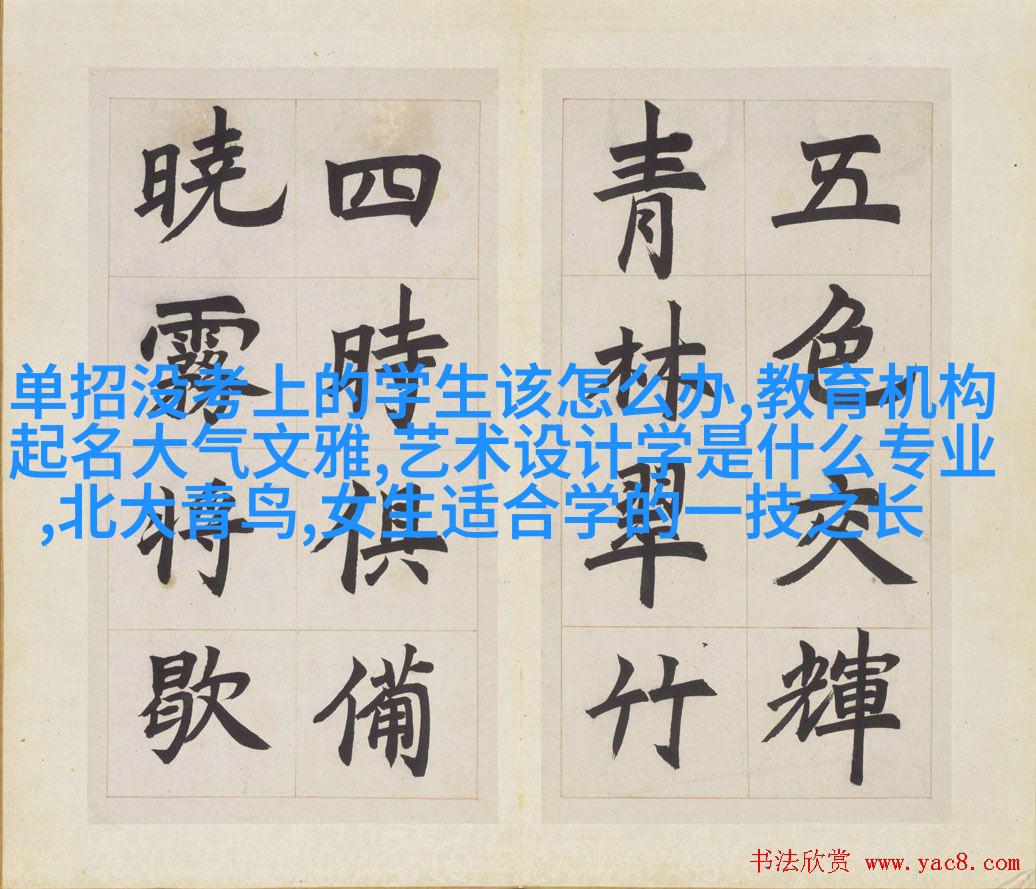 五色交輝
青林翠竹
四時俱備
曉霧將歇
单招没考上的学生该怎么办,教育机构
起名大气文雅,艺术设计学是什么专业
,北大青鸟,女生适合学的一技之长
书法欣赏 www.yac8.com